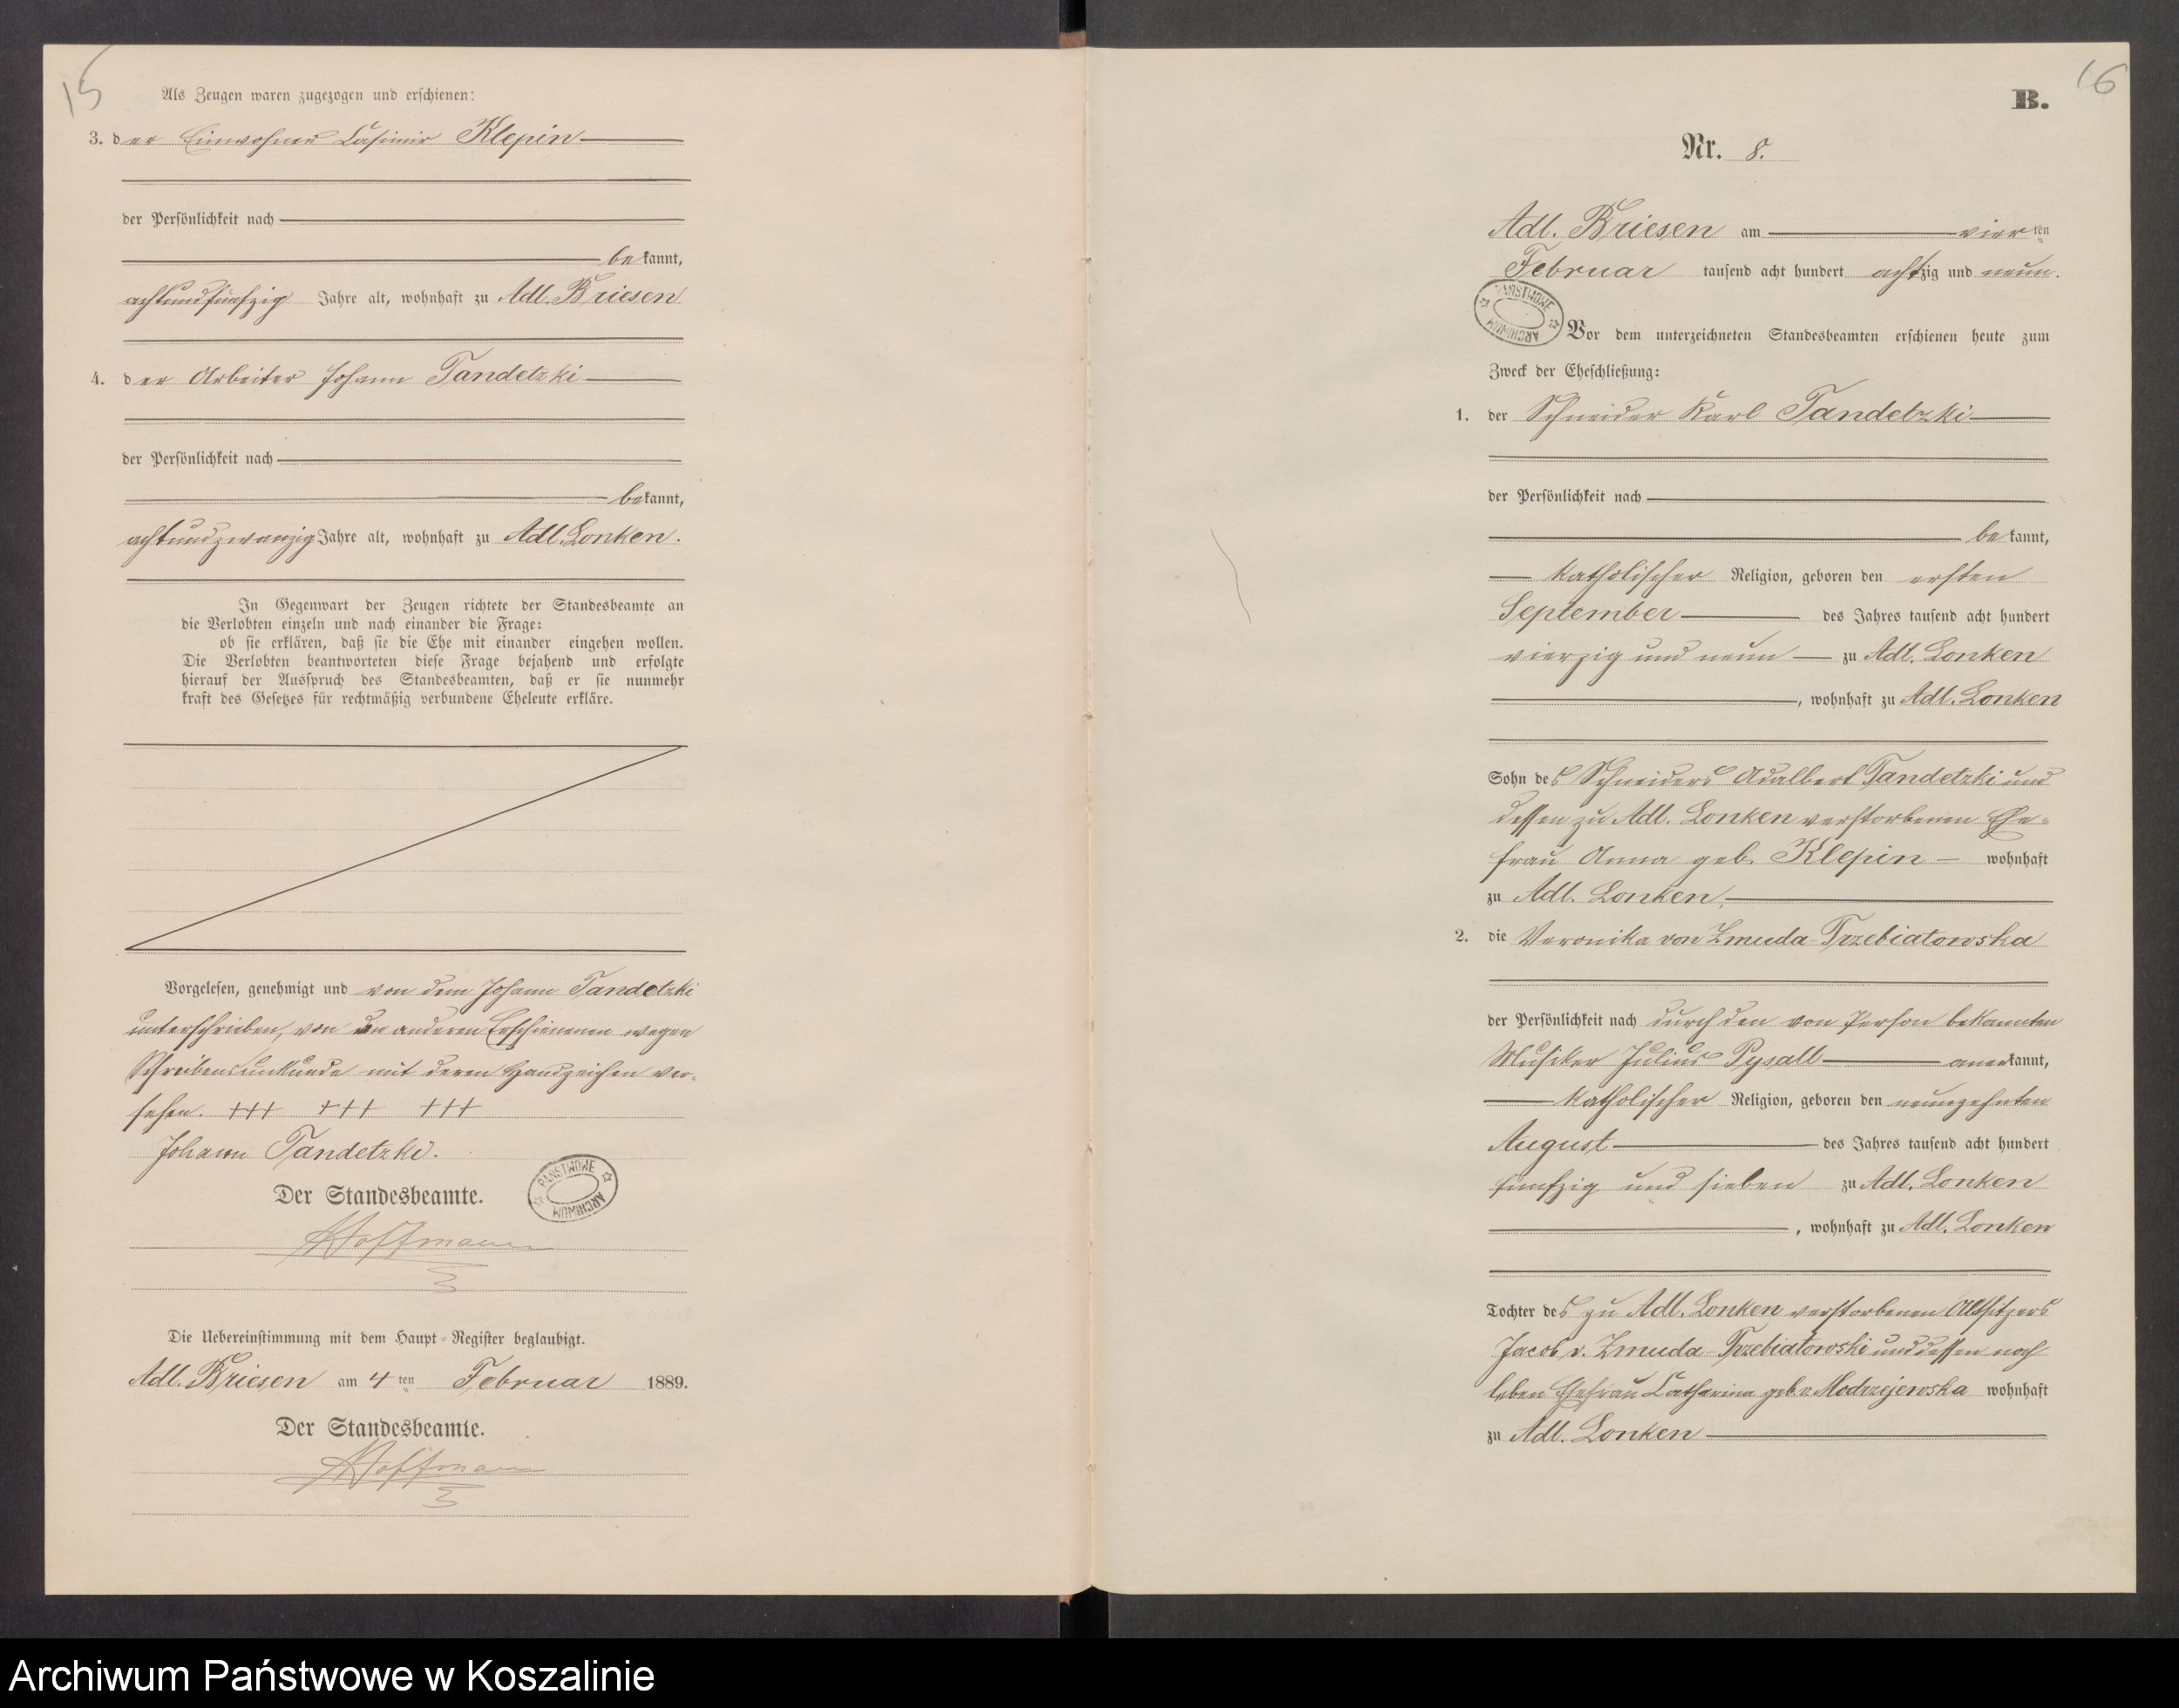 15
Als Zeugen waren zugezogen und erschienen:
3. der Einwohner Casimir Klepin
der Persönlichkeit nach
bekannt,
achtundfünfzig Jahre alt, wohnhaft zu Adl. Briesen
4. der Arbeiter Johann Tandetzki
der Persönlichkeit nach
bekannt,
achtundzwanzig Jahre alt, wohnhaft zu Adl. Lonken.
In Gegenwart der Zeugen richtete der Standesbeamte an
die Verlobten einzeln und nach einander die Frage:
ob sie erklären, daß sie die Ehe mit einander eingehen wollen.
Die Verlobten beantworteten diese Frage bejahend und erfolgte
hierauf der Ausspruch des Standesbeamten, daß er sie nunmehr
kraft des Gesetzes für rechtmäßig verbundene Eheleute erkläre.
Vorgelesen, genehmigt und von dem Johann Tandetzki
unterschrieben, von den anderen Erschienenen wegen
Schreibensunkunde mit deren Handzeichen ver-
sehen. +++ +++ +++
Johann Tandetzki.
Der Standesbeamte.
PAŃSTWOWE ARCHIWUM
Hoffmann
Die Uebereinstimmung mit dem Haupt-Register beglaubigt.
Adl. Briesen am 4ten Februar 1889.
Der Standesbeamte.
Hoffmann
16
B.
Nr. 8.
Adl. Briesen am vierten
Februar tausend acht hundert achtzig und neun.
PAŃSTWOWE ARCHIWUM
Vor dem unterzeichneten Standesbeamten erschienen heute zum
Zweck der Eheschließung:
1. der Schneider Karl Tandetzki
der Persönlichkeit nach
bekannt,
katholischer Religion, geboren den ersten
September des Jahres tausend acht hundert
vierzig und neun zu Adl. Lonken
, wohnhaft zu Adl. Lonken
Sohn des Schneiders Adalbert Tandetzki und
dessen zu Adl. Lonken verstorbenen Ehe-
frau Anna geb. Klepin wohnhaft
zu Adl. Lonken,
2. die Veronika von Zmuda-Trzebiatowska
der Persönlichkeit nach durch den von Person bekannten
Musiker Julius Pysall anerkannt,
katholischer Religion, geboren den neunzehnten
August des Jahres tausend acht hundert
fünfzig und sieben zu Adl. Lonken
, wohnhaft zu Adl. Lonken
Tochter des zu Adl. Lonken verstorbenen Altsitzers
Jacob v. Zmuda-Trzebiatowski und dessen noch
leben Ehefrau Catharina geb. v. Modrzejewska wohnhaft
zu Adl. Lonken
Archiwum Państwowe w Koszalinie